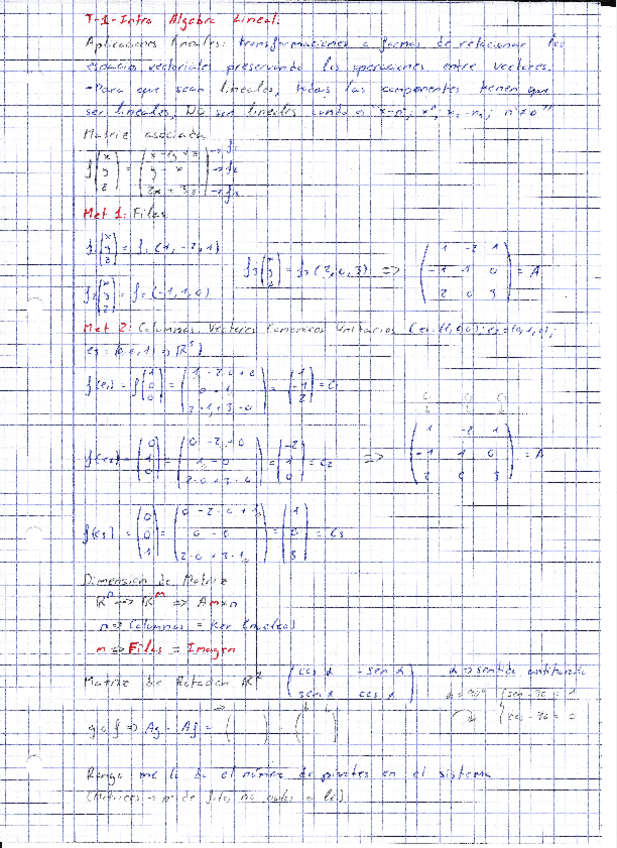 T-1-Intro Algebra Lineal.
Aplicaciones lineales: transformaciones o formas de relacionar los
espacios vectoriales preservando las operaciones entre vectores.
-Para que sean lineales, todas las componentes tienen que
ser lineales, NO ser lineales cuando n≠0
Matriz asociada
f(x y z) = (x-2y+z → f1
y-x → f2
2x+3z) → f3
Met 1: Filas
f1(x y z) = f1(1, -2, 1)
f3(x y z) = f3(2,0,3) => (1 -2 1
-1 1 0
2 0 3) = A
f2(x y z) = f2(-1,1,0)
Met 2: Columnas. Vectores Canonicos Unitarios (e1=(1,0,0); e2=(0,1,0);
e3=(0,0,1) → R³)
f(e1) = f(1 0 0) = (1-2·0+0
0-1
2·1+3·0) = (1 -1 2) = C1
f(e2) = (0 1 0) = (0-2+0
1-0
2·0+3·0) = (-2 1 0) = C2
=> (1 -2 1
-1 1 0
2 0 3) = A
f(e3) = (0 0 1) = (0-2·0+1
0-0
2·0+3·1) = (1 0 3) = C3
Dimension de Matriz
Rⁿ → Rᵐ => Amxn
n => Columnas = Ker (nucleo)
m => Filas = Imagen
Matriz de Rotacion R² (cos α -sen α
sen α cos α)
α → sentido antihorario
α = 90º {sen 90 = 1
cos 90 = 0
g o f => Ag · Af = ( ) · ( )
Rango me lo da el número de pivotes en el sistema